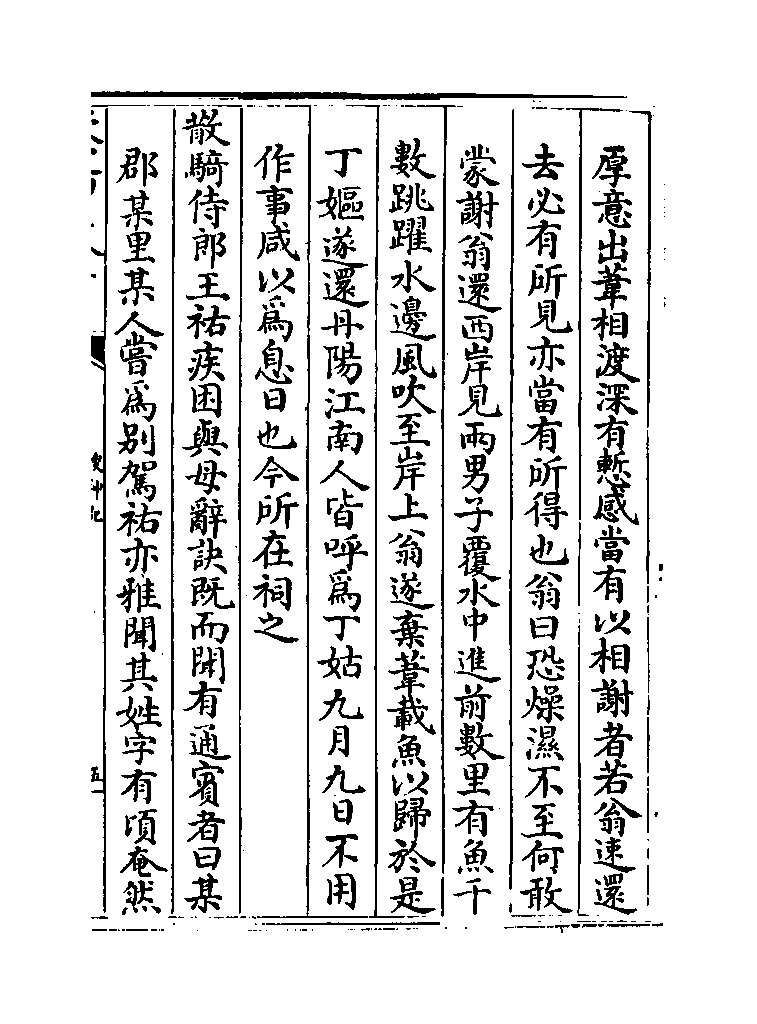 厚意出葦相渡深有慙感當有以相謝者若翁速還
去必有所見亦當有所得也翁曰恐燥濕不至何敢
蒙謝翁還西岸見兩男子覆水中進前數里有魚千
數跳躍水邊風吹至岸上翁遂棄葦載魚以歸於是
丁嫗遂還丹陽江南人皆呼爲丁姑九月九日不用
作事咸以爲息日也今所在祠之
散騎侍郎王祐疾困與母辭訣既而聞有通賓者曰某
郡某里某人嘗爲别駕祐亦雅聞其姓字有頃奄然
搜神記
五